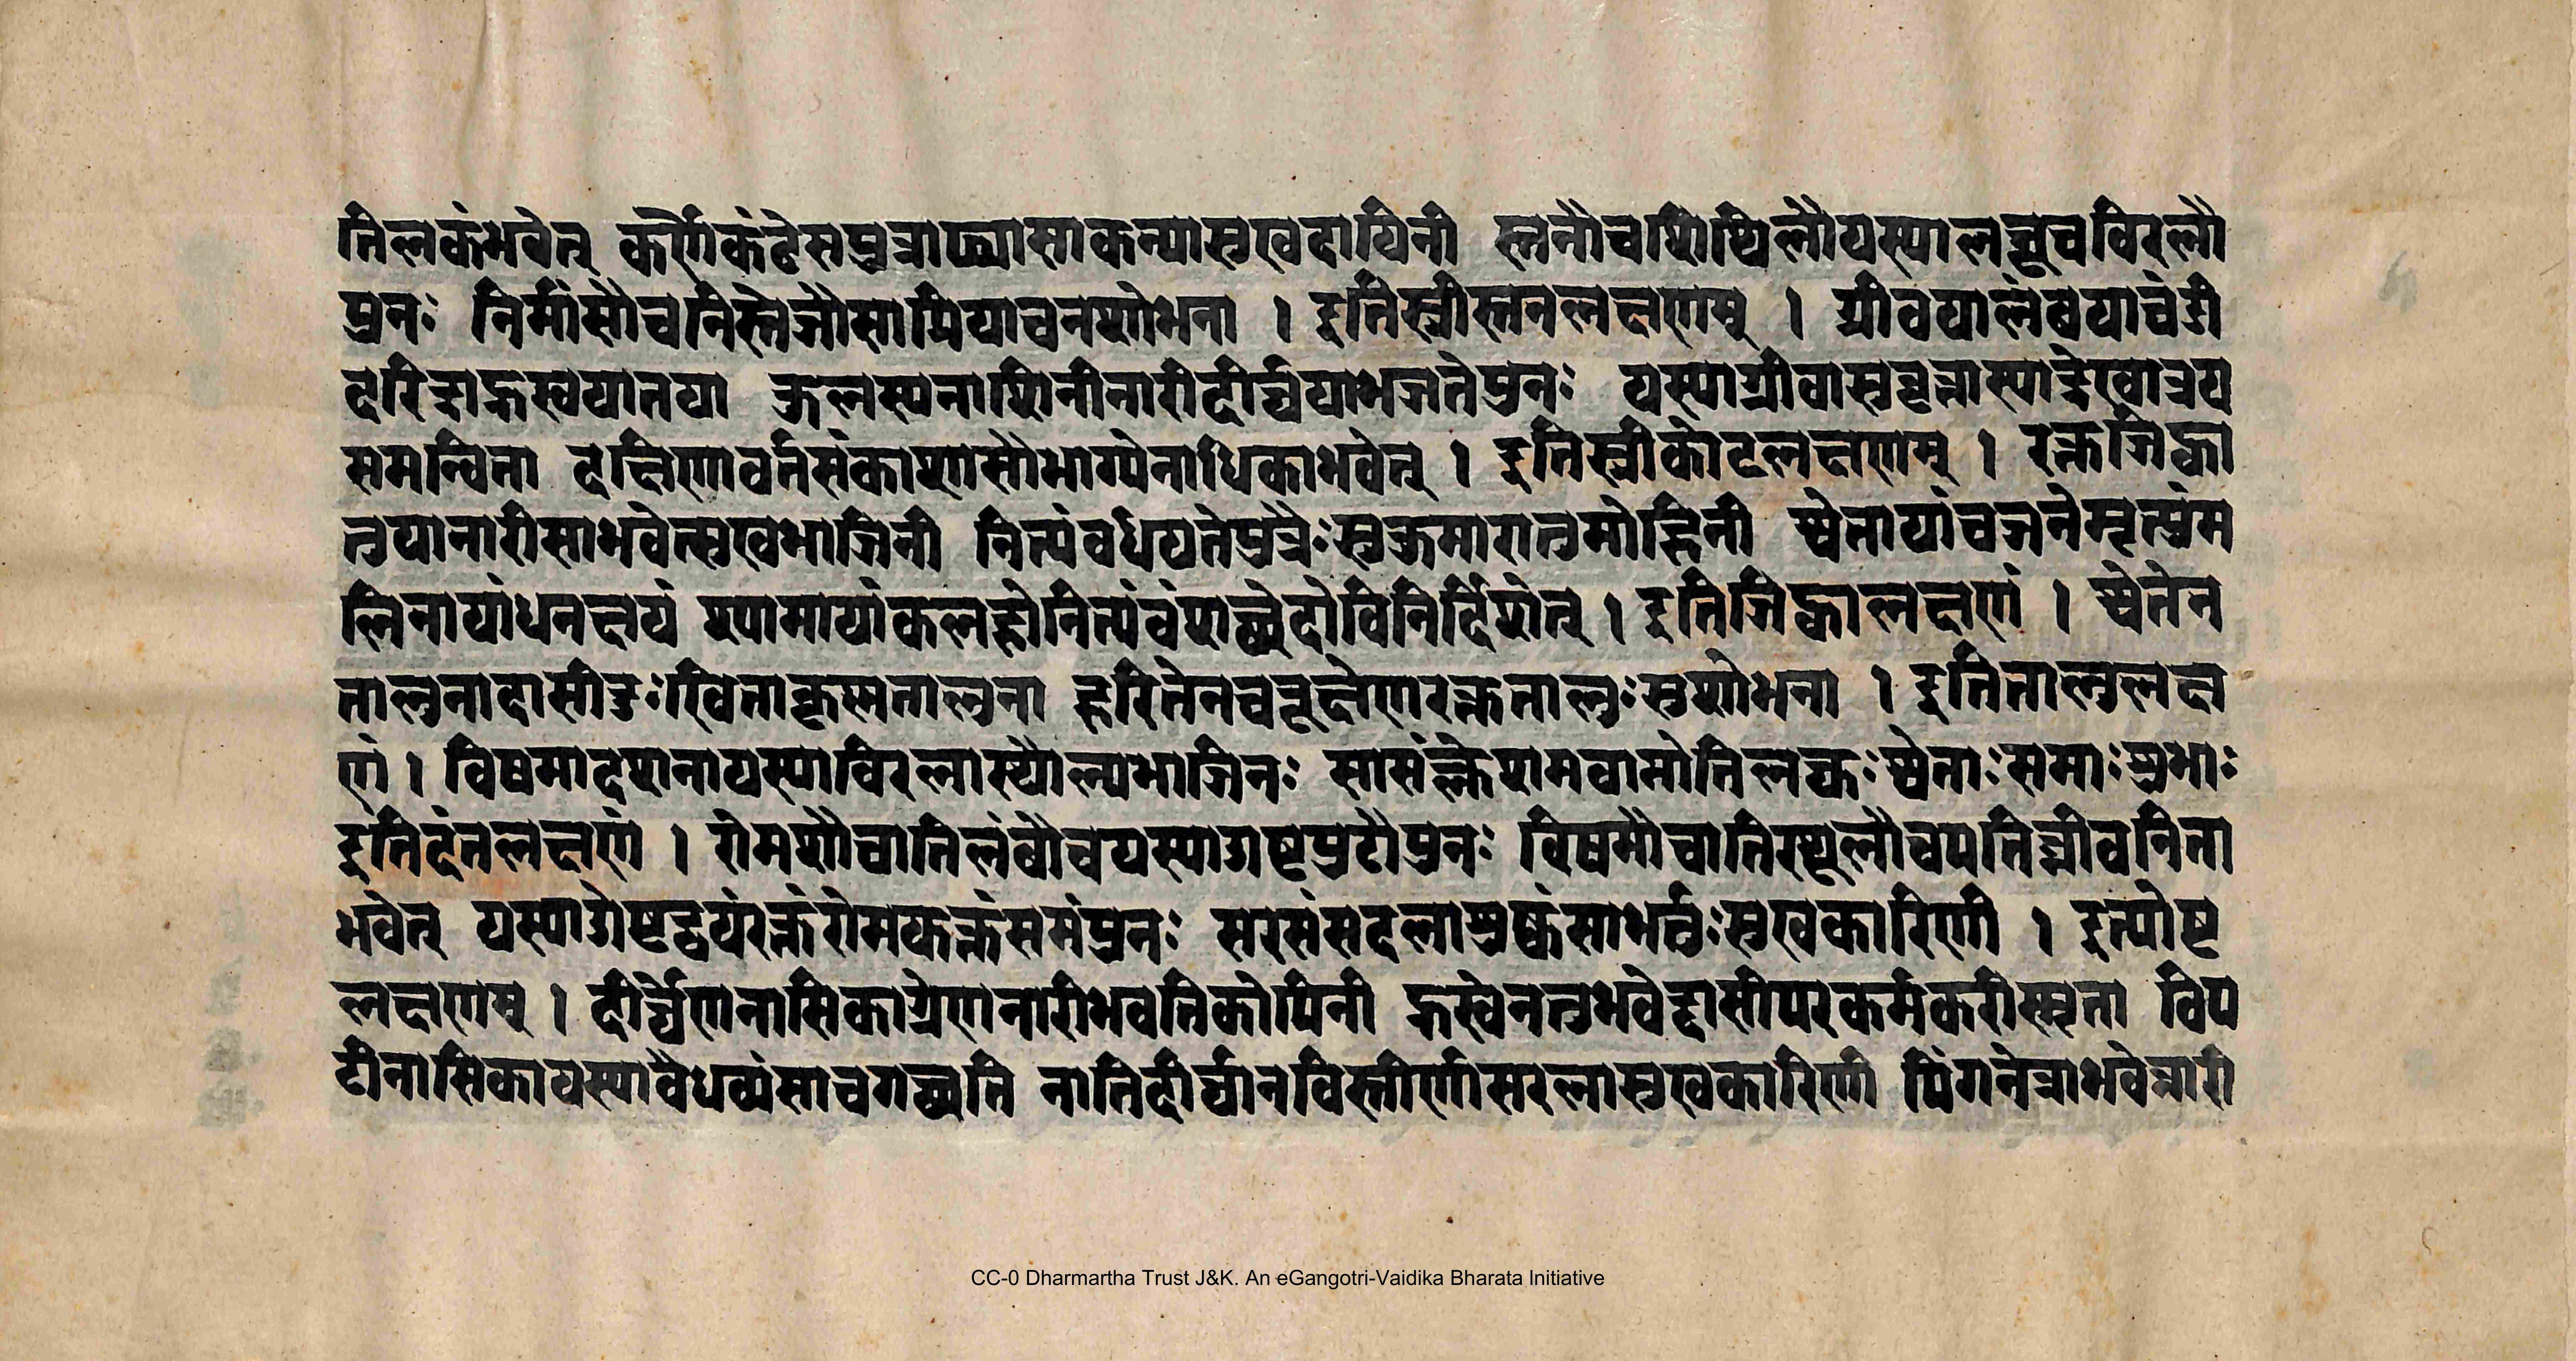 तिलकंभवेत् कर्णेकंठेसपुत्राप्यासाकन्यासुखदायिनी स्तनौचशिथिलौयस्यालघूचविरलौ
पुनः निर्मांसौचनिस्तेजौसापियाचनशोभना । इतिस्त्रीस्तनलक्षणम् । ग्रीवयालंबयाचंडी
दरिद्राह्रस्वयातया कुलस्यनाशिनीनारीदीर्घयाभजतेपुनः यस्याग्रीवासुवृत्तास्याद्रेखात्रय
समन्विता दक्षिणावर्तसंकाशासौभाग्येनाधिकाभवेत् । इतिस्त्रीकोटलक्षणम् । रक्तजिह्वा
तुयानारीसाभवेत्सुखभाजिनी नित्यंवर्धयतेपुत्रैःसुकुमारातुमोहिनी श्वेतायांचजनेमृत्युंम
लिनायांधनक्षयं श्यामायांकलहोनित्यंवंशच्छेदोविनिर्दिशेत् । इतिजिह्वालक्षणं । श्वेतेन
तालुनादासीदुःखिताकृष्णतालुना हरितेनचवृक्षेणरक्ततालुःसुशोभना । इतितालुलक्ष
णं । विषमादशनायस्याविरलास्थौल्यभाजिनः सासंक्लेशमवाप्नोतिलक्षः श्वेताःसमाःशुभाः
इतिदंतलक्षणं । रोमशौचातिलंबौचयस्याओष्टपुटौपुनः विषमौचातिस्थूलौचपतिघ्नीवनिता
भवेत् यस्याओष्टद्वयंरक्तंरोमकक्तंसमंपुनः सरसंसदलाशुष्कंसाभर्तुःसुखकारिणी । इत्योष्ट
लक्षणम् । दीर्घेणनासिकाग्रेणनारीभवतिकोपिनी ह्रस्वेनतुभवेद्दासीपरकर्मकरीस्मृता चिप
टीनासिकायस्यावैधव्यंसाचगच्छति नातिदीर्घानविस्तीर्णासरलासुखकारिणी पिंगनेत्राभवेन्नारी
CC-0 Dharmartha Trust J&K. An eGangotri-Vaidika Bharata Initiative